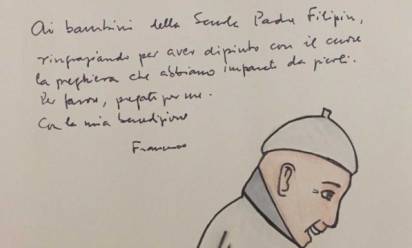 Ai bambini della Scuola Padre Filipin,
ringraziando per aver dipinto con il cuore
la preghiera che abbiamo imparato da piccoli.
Per favore, pregate per me.
Con la mia benedizione
Francesco